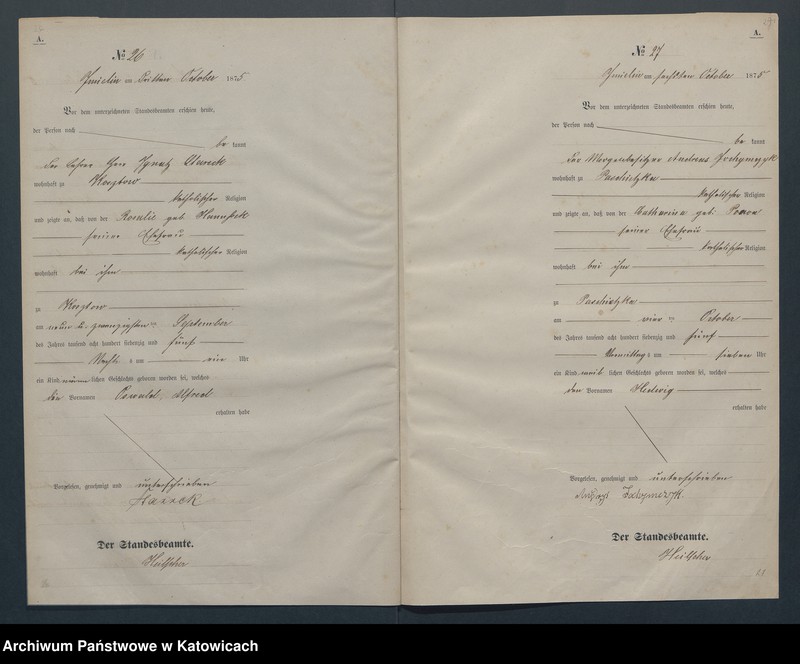 A.
№ 26
Imielin am dritten October 1875
Vor dem unterzeichneten Standesbeamten erschien heute,
der Person nach
be kannt
der Lehrer Herr Ignatz
wohnhaft zu Kosztow
katholischer Religion
und zeigte an, daß von der Rosalie geb.
seiner Ehefrau
katholischer Religion
wohnhaft bei ihm
zu Kosztow
am neun u. zwanzigsten September
des Jahres tausend acht hundert siebenzig und fünf
Nachts um ein Uhr
ein Kind männlichen Geschlechts geboren worden sei, welches
die Vornamen Oswald, Alfred
erhalten habe
Vorgelesen, genehmigt und unterschrieben
Der Standesbeamte.
A.
№ 27
Imielin am sechsten October 1875
Vor dem unterzeichneten Standesbeamten erschien heute,
der Person nach
be kannt
der Andreas
wohnhaft zu
katholischer Religion
und zeigte an, daß von der Katharina geb.
seiner Ehefrau
katholischer Religion
wohnhaft bei ihm
zu
am vier October
des Jahres tausend acht hundert siebenzig und fünf
Vormittags um sieben Uhr
ein Kind weiblichen Geschlechts geboren worden sei, welches
den Vornamen Hedwig
erhalten habe
Vorgelesen, genehmigt und unterschrieben
Der Standesbeamte.
Archiwum Państwowe w Katowicach